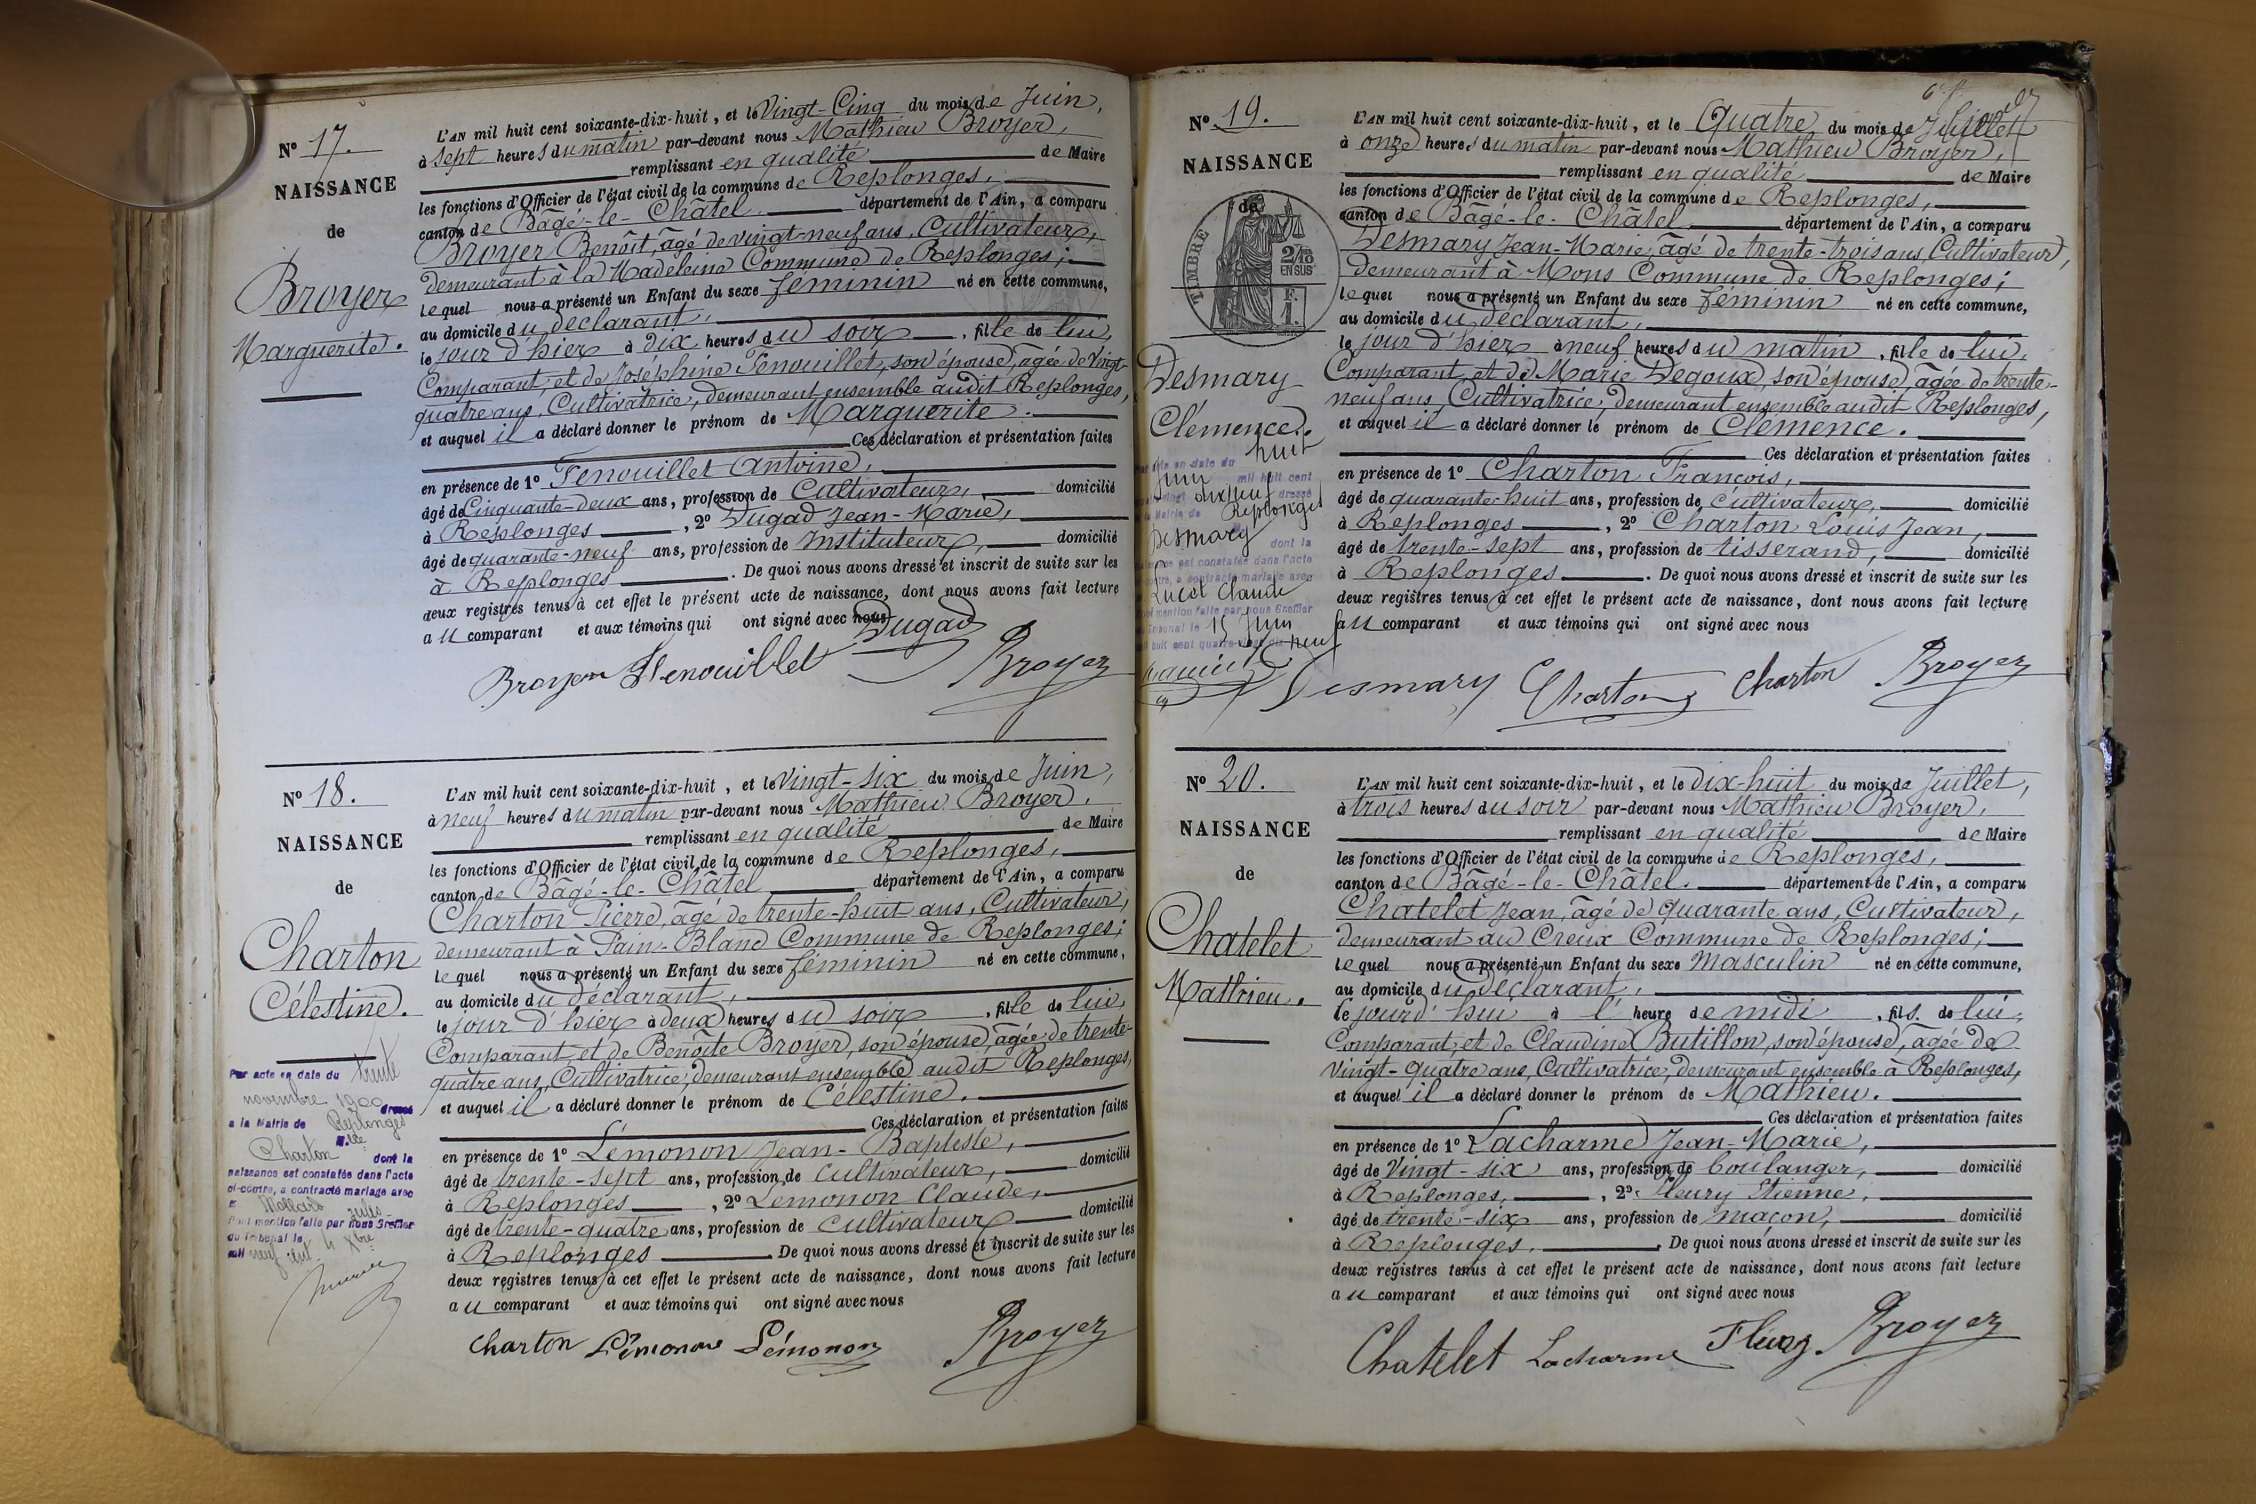 N° 17.
NAISSANCE
de
Broyer
Marguerite.
L'AN mil huit cent soixante-dix-huit, et le Vingt-Cinq du mois de Juin,
à sept heures du matin par-devant nous Mathieu Broyer,
remplissant en qualité de Maire
les fonctions d'Officier de l'état civil de la commune de Replonges,
canton de Bâgé-le-Châtel département de l'Ain, a comparu
Broyer Benoît, âgé de vingt-neuf ans, Cultivateur,
demeurant à la Madeleine Commune de Replonges;
lequel nous a présenté un Enfant du sexe féminin né en cette commune,
au domicile du déclarant,
le jour d'hier à dix heures du soir, fille de lui,
Comparant, et de Joséphine Fenouillet, son épouse, âgée de vingt-
quatre ans, Cultivatrice, demeurant ensemble audit Replonges,
et auquel il a déclaré donner le prénom de Marguerite.
Ces déclaration et présentation faites
en présence de 1° Fenouillet Antoine,
âgé de Cinquante-deux ans, profession de Cultivateur, domicilié
à Replonges, 2° Dugad Jean-Marie,
âgé de quarante-neuf ans, profession de Instituteur, domicilié
à Replonges. De quoi nous avons dressé et inscrit de suite sur les
deux registres tenus à cet effet le présent acte de naissance, dont nous avons fait lecture
au comparant et aux témoins qui ont signé avec nous
Dugad
Broyer Fenouillet Broyer
N° 18.
NAISSANCE
de
Charton
Célestine.
Par acte en date du trente
novembre 1900 dressé
a la Mairie de Replonges
Melle
Charton dont la
naissance est constatée dans l'acte
ci-contre, a contracté mariage avec
Jules
dont mention faite par nous Greffier
du Tribunal le 4 Xbre
mil neuf cent
L'AN mil huit cent soixante-dix-huit, et le Vingt-six du mois de Juin,
à neuf heures du matin par-devant nous Mathieu Broyer,
remplissant en qualité de Maire
les fonctions d'Officier de l'état civil de la commune de Replonges,
canton de Bâgé-le-Châtel département de l'Ain, a comparu
Charton Pierre, âgé de trente-huit ans, Cultivateur,
demeurant à Pain-Blanc Commune de Replonges;
lequel nous a présenté un Enfant du sexe féminin né en cette commune,
au domicile du déclarant,
le jour d'hier à deux heures du soir, fille de lui,
Comparant, et de Benoîte Broyer, son épouse, âgée de trente-
quatre ans, Cultivatrice, demeurant ensemble audit Replonges,
et auquel il a déclaré donner le prénom de Célestine.
Ces déclaration et présentation faites
en présence de 1° Lémonon Jean-Baptiste,
âgé de trente-sept ans, profession de Cultivateur, domicilié
à Replonges, 2° Lémonon Claude,
âgé de trente-quatre ans, profession de Cultivateur domicilié
à Replonges. De quoi nous avons dressé et inscrit de suite sur les
deux registres tenus à cet effet le présent acte de naissance, dont nous avons fait lecture
au comparant et aux témoins qui ont signé avec nous
Charton Lémonon Lémonon Broyer
N° 19.
NAISSANCE
de
TIMBRE
2/10
EN SUS
F.
1.
Desmary
Clémence.
Par acte en date du huit
Juin mil huit cent
quatre-vingt dixneuf dressé
a la Mairie de Replonges
Desmary dont la
naissance est constatée dans l'acte
ci-contre, a contracté mariage avec
Claude
dont mention faite par nous Greffier
du Tribunal le 15 Juin
mil huit cent quatre-vingt-dix neuf
L'AN mil huit cent soixante-dix-huit, et le Quatre du mois de Juillet
à onze heures du matin par-devant nous Mathieu Broyer,
remplissant en qualité de Maire
les fonctions d'Officier de l'état civil de la commune de Replonges,
canton de Bâgé-le-Châtel département de l'Ain, a comparu
Desmary Jean-Marie, âgé de trente-trois ans Cultivateur,
demeurant à Mons Commune de Replonges;
lequel nous a présenté un Enfant du sexe féminin né en cette commune,
au domicile du déclarant,
le jour d'hier à neuf heures du matin, fille de lui,
Comparant, et de Marie Degoux, son épouse, âgée de trente-
neuf ans, Cultivatrice, demeurant ensemble audit Replonges,
et auquel il a déclaré donner le prénom de Clémence.
Ces déclaration et présentation faites
en présence de 1° Charton François,
âgé de quarante-huit ans, profession de Cultivateur, domicilié
à Replonges, 2° Charton Louis Jean,
âgé de trente-sept ans, profession de tisserand, domicilié
à Replonges. De quoi nous avons dressé et inscrit de suite sur les
deux registres tenus à cet effet le présent acte de naissance, dont nous avons fait lecture
au comparant et aux témoins qui ont signé avec nous
Desmary Charton Charton Broyer
N° 20.
NAISSANCE
de
Chatelet
Mathieu.
L'AN mil huit cent soixante-dix-huit, et le dix-huit du mois de Juillet,
à trois heures du soir par-devant nous Mathieu Broyer,
remplissant en qualité de Maire
les fonctions d'Officier de l'état civil de la commune de Replonges,
canton de Bâgé-le-Châtel. département de l'Ain, a comparu
Chatelet Jean, âgé de quarante ans, Cultivateur,
demeurant au Creux Commune de Replonges;
lequel nous a présenté un Enfant du sexe Masculin né en cette commune,
au domicile du déclarant,
le jourd'hui à l' heure de midi, fils. de lui,
Comparant, et de Claudine Butillon, son épouse, âgée de
Vingt-quatre ans, Cultivatrice, demeurant ensemble à Replonges,
et auquel il a déclaré donner le prénom de Mathieu.
Ces déclaration et présentation faites
en présence de 1° Lacharme Jean-Marie,
âgé de Vingt-six ans, profession de boulanger, domicilié
à Replonges, 2° Fleury Etienne,
âgé de trente-six ans, profession de maçon, domicilié
à Replonges. De quoi nous avons dressé et inscrit de suite sur les
deux registres tenus à cet effet le présent acte de naissance, dont nous avons fait lecture
au comparant et aux témoins qui ont signé avec nous
Chatelet Lacharme Fleury Broyer